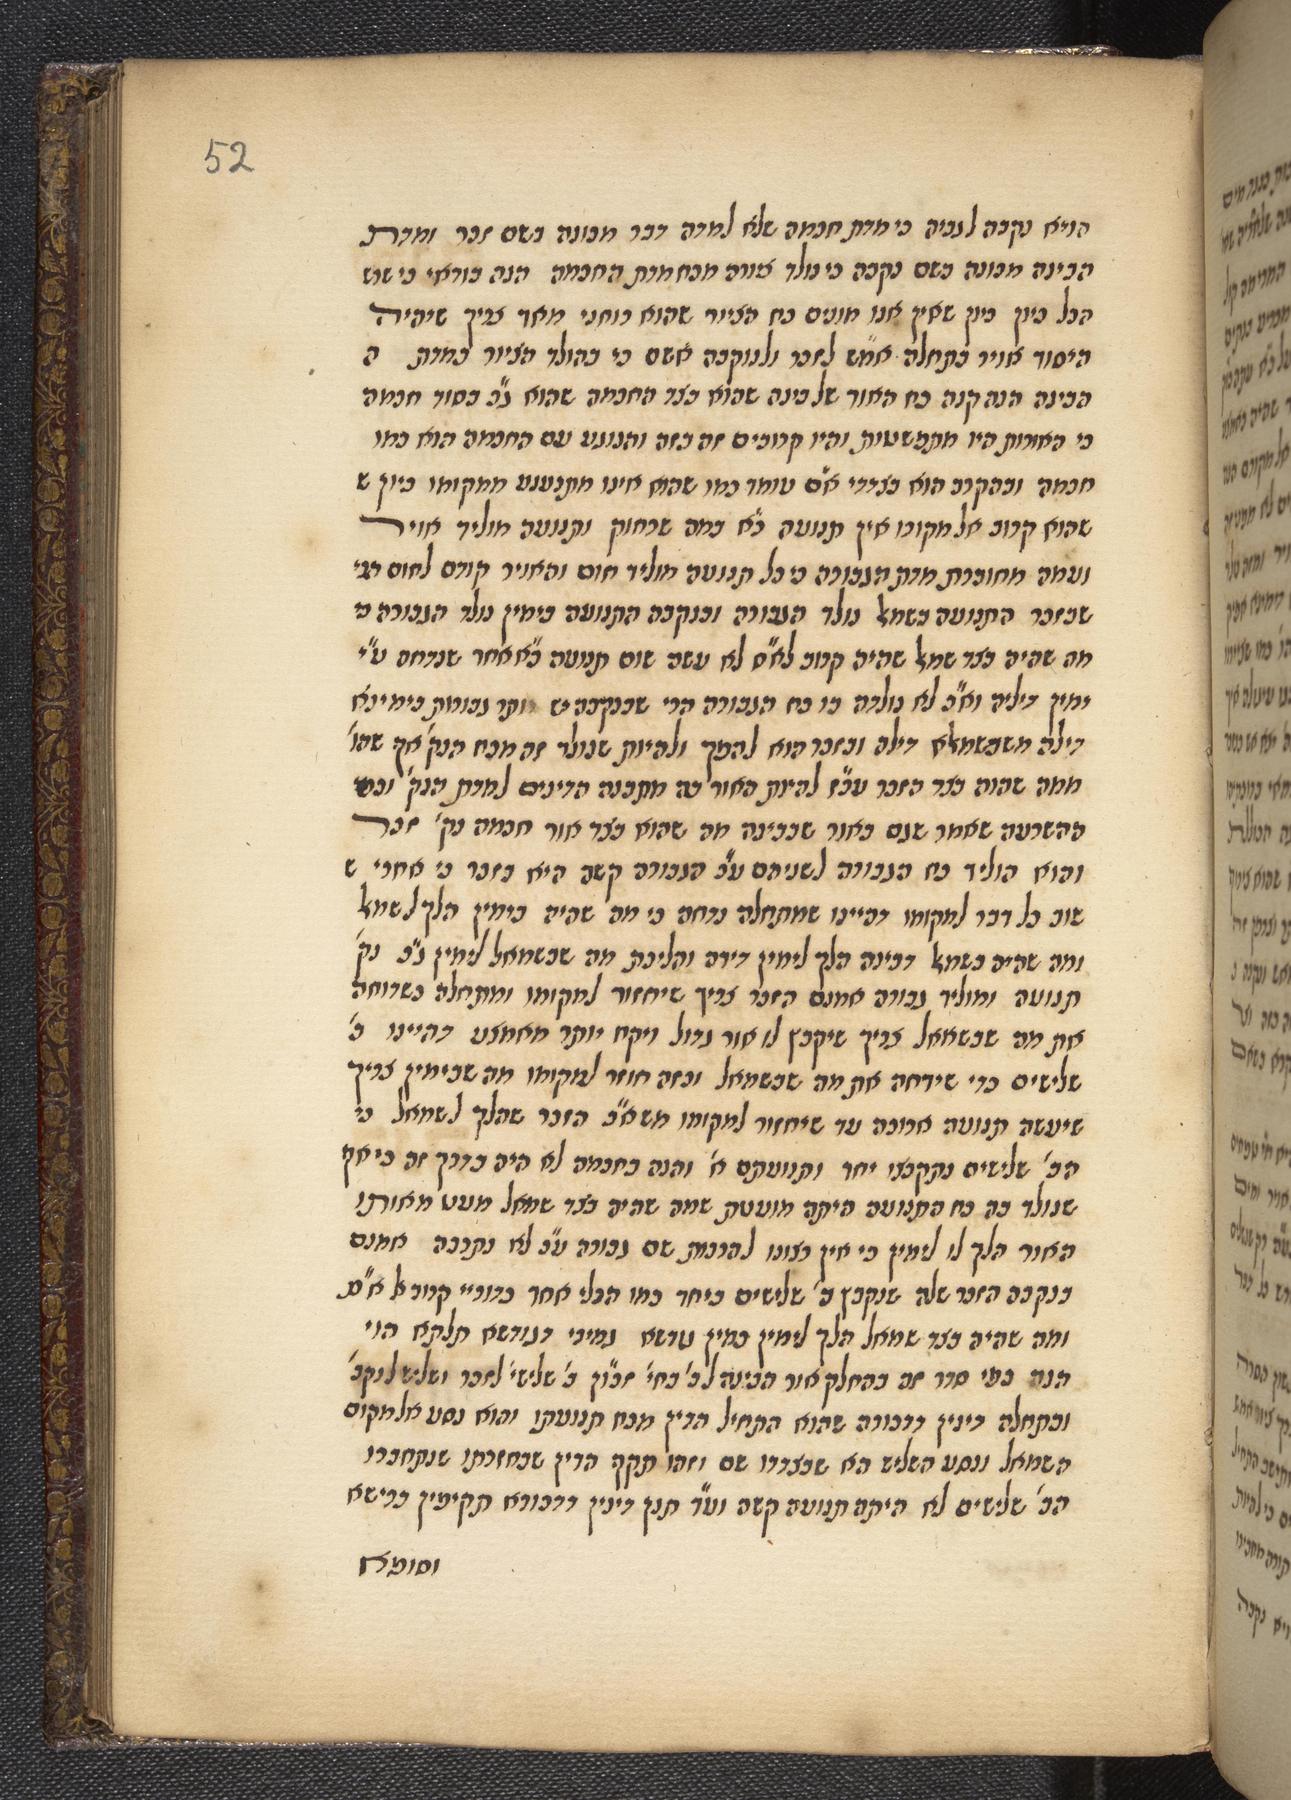 52
הויא נקבה לגביה כי מדת חכמה שלא למדה דבר מכונה בשם זכר ומדת
הבינה מכונה בשם נקבה כי נולד צורה מכח מדת החכמה הנה בודאי כי שוש
הכל כיון כיון שאין אנו מונים כח הציור שהוא רוחני מאד צריך שיהיה
היסוד אויר בתחלה אמש לזכר ולנוקבה אשם כי בהולד הציור במדת ה
הבינה הנה קנה כח האור של בינה שהוא בצד החכמה שהוא ג"כ בסוד חכמה
כי האורות היו מתפשטות והיו קרובים זה בזה והנוגע עם החכמה הוא כמו
חכמה ובהקרב הוא בצדדי א"ס עומד כמו שהוא אינו מתנענע ממקומו כיון ש
שהוא קרוב אל מקורו אין תנועה כ"א במה שרחוק ותנועה מוליד אויר
ועמה מחוברת מדת הגבורה כי כל תנועה מוליד חום והאויר קודם לחום הרי
שבזכר התנועה בשמאל נולד הגבורה ובנקבה התנועה בימין נולד הגבורה כי
מה שהיה בצד שמאל שהיה קרוב לא"ס לא עשה שום תנועה כ"א אחר שנדחה ע"י
ימין דיליה וא"כ לא נולדה בו כח הגבורה הרי שבנקבה יש יותר גבורות בימינא
דילה משבשמאלא דילה ובזכר הוא להפך ולהיות שנולד זה מכח הנק' אף שהו'
ממה שהוה בצד הזכר עכ"ז להיות האור בה מתכנה הדינים למדת הנק' וכפי
ההשרעה שאמר שגם באור שבבינה מה שהוא בצד אור חכמה נק' זכר
והוא הוליד כח הגבורה לשניהם ע"כ הגבורה קשה היא בזכר כי אחרי ש
שוב כל דבר למקומו דהיינו שמתחלה נדחה כי מה שהיה בימין הלך לשמאל
ומה שהיה בשמאל דבינה הלך לימין דידה והליכת מה שבשמאל לימין ג"כ נק'
תנועה ומוליד גבורה אמנם הזכר צריך שיחזור למקומו ומתחלה כשדוחה
את מה שבשמאל צריך שיקבץ לו אור גדול ויקח יותר מאמצע דהיינו ב'
שלישים כדי שידחה את מה שבשמאל ובזה חוזר למקומו מה שבימין צריך
שיעשה תנועה ארוכה עד שיחזור למקומו משא"כ הזכר שהלך לשמאל כי
הב' שלישים נתקבצו יחד ותנועתם א' והנה בחכמה לא היה בדרך זה כי אף
שנולד בה כח התנועה היתה מועטת שמה שהיה בצד שמאל מעט מאותו
האור הלך לו לימין כי אין רצונו להרבות שם גבורה ע"כ לא נתרבה אמנם
בנקבה הזכר שלה שנקבץ ב' שלישים ביחד כמו הכלי אחר כדוגיי קרוב אל א"ס
ומה שהיה בצד שמאל הלך לימין כמין טרשא גמירי דגודשא תלתא הוי
הנה כפי סדר זה בהחלק אור הבינה לב' בחי' זכ"ון ב' שלישי' לזכר ושליש לנקב'
ובתחלה דינין דדכורה שהוא התחיל הדין מכח תנועתו והוא נסע אל מקום
השמאל ונסע השליש הא שבצדדו שם וזהו תקף הדין שבחזרתו שנתחברו
הב' שלישים לא היתה תנועה קשה וע"ד תנן דינין דדכורא תקיפין ברישא
וסופא